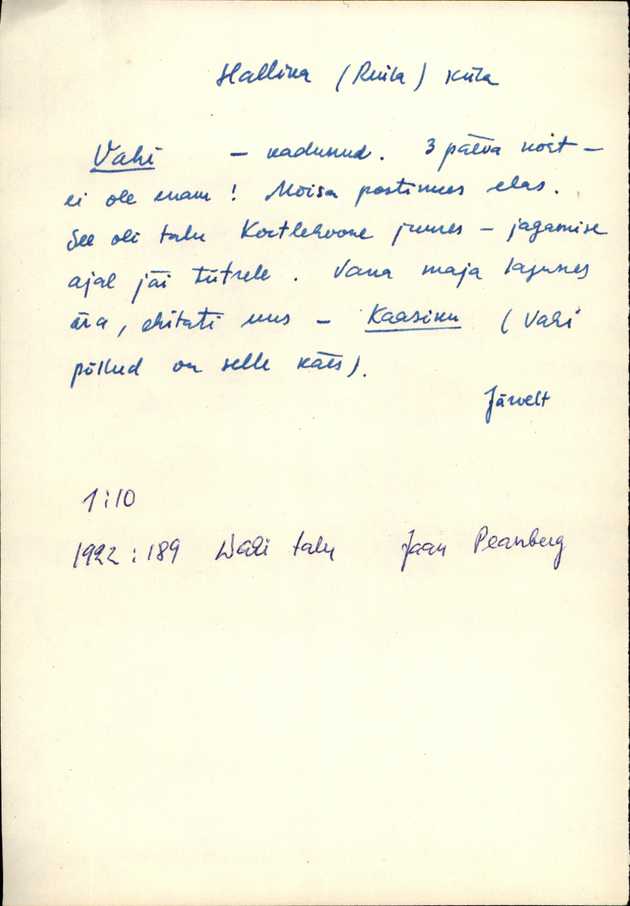 Hallina (Ruila) küla
Vahi - kadunud. 3 päeva koht -
ei ole enam! Mõisa postimees elas.
See oli talu Kortlehoone juures - jagamise
ajal jäi tütrele. Vana maja lagunes
ära, ehitati uus - Kaasiku (Vahi
põllud on selle käes).
Järvelt
1:10
1922:189 Wahi talu Jaan Pearnberg